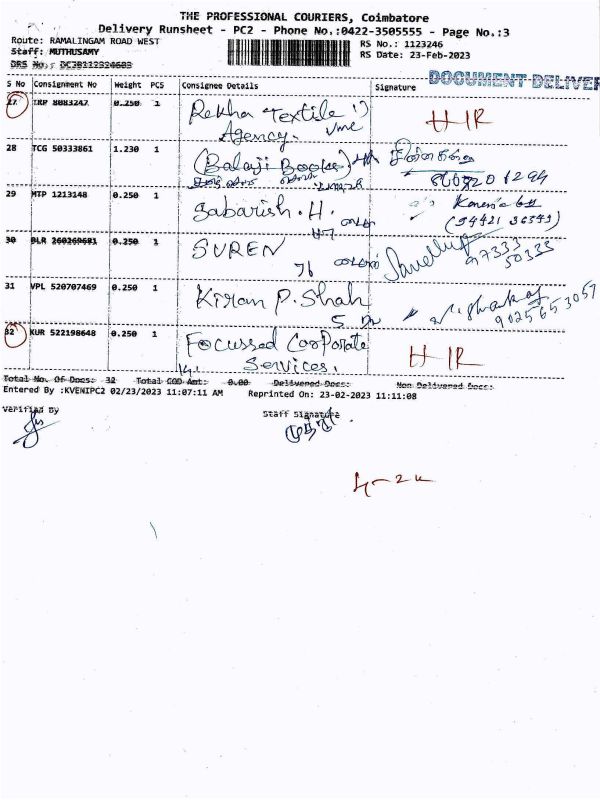 THE PROFESSIONAL COURIERS, Coimbatore
Delivery Runsheet - PC2 - Phone No.:0422-3505555 - Page No.:3
Route: RAMALINGAM ROAD WEST
RS No.: 1123246
Staff: MUTHUSAMY
RS Date: 23-Feb-2023
DRS No.:
DOCUMENT DELIVER
S No Consignment No Weight PCS Consignee Details Signature
27 IRP 8083247 0.250 1 Rekha Textile
Agency.
HIR
28 TCG 50333861 1.230 1 (Balaji Books)
29 MTP 1213148 0.250 1 Sabarish. H.
(94421 36543)
30 BLR 260269681 0.250 1 SUREN
76
97333
50333
31 VPL 520707469 0.250 1 Kiran P. Shah
9025653057
32 KUR 522198648 0.250 1 Focussed Corporate
Services.
HIR
Total No. Of Docs: 32 Total COD Amt: 0.00 Delivered Docs: Non Delivered Docs:
Entered By :KVENIPC2 02/23/2023 11:07:11 AM Reprinted On: 23-02-2023 11:11:08
Verified By
Staff Signature